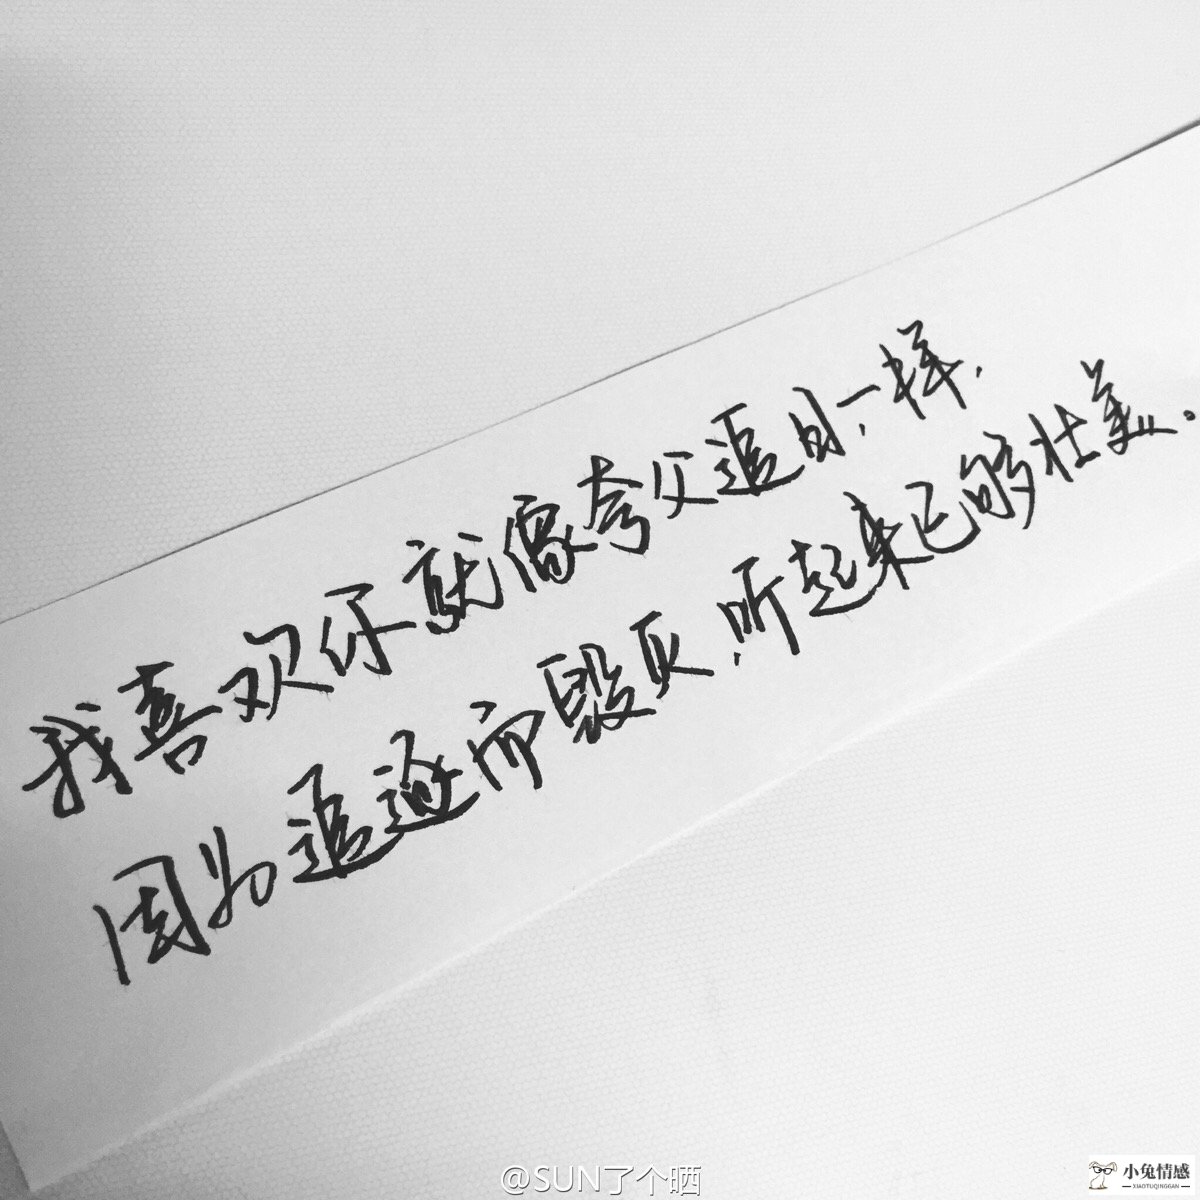 我喜欢你就像夸父追日一样,
因为追逐而毁灭,听起来已够壮美。
@SUN了个晒
小兔情感
XIAOTUQINGGAN